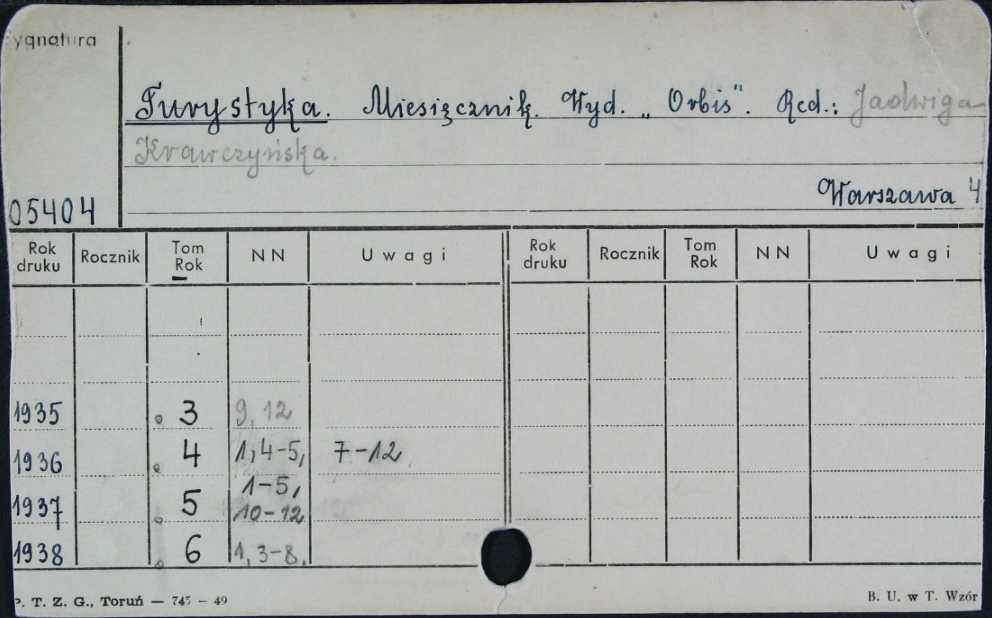 ygnatura
Turystyka. Miesięcznik. Wyd. „Orbis". Red.: Jadwiga
Krawczyńska.
05404
Warszawa 4
Rok druku Rocznik Tom Rok NN Uwagi Rok druku Rocznik Tom Rok NN Uwagi
1935 3 9, 12
1936 4 1, 4-5, 7-12
1937 5 1-5, 10-12
1938 6 1, 3-8.
P. T. Z. G., Toruń — 745 – 49 B. U. w T. Wzór